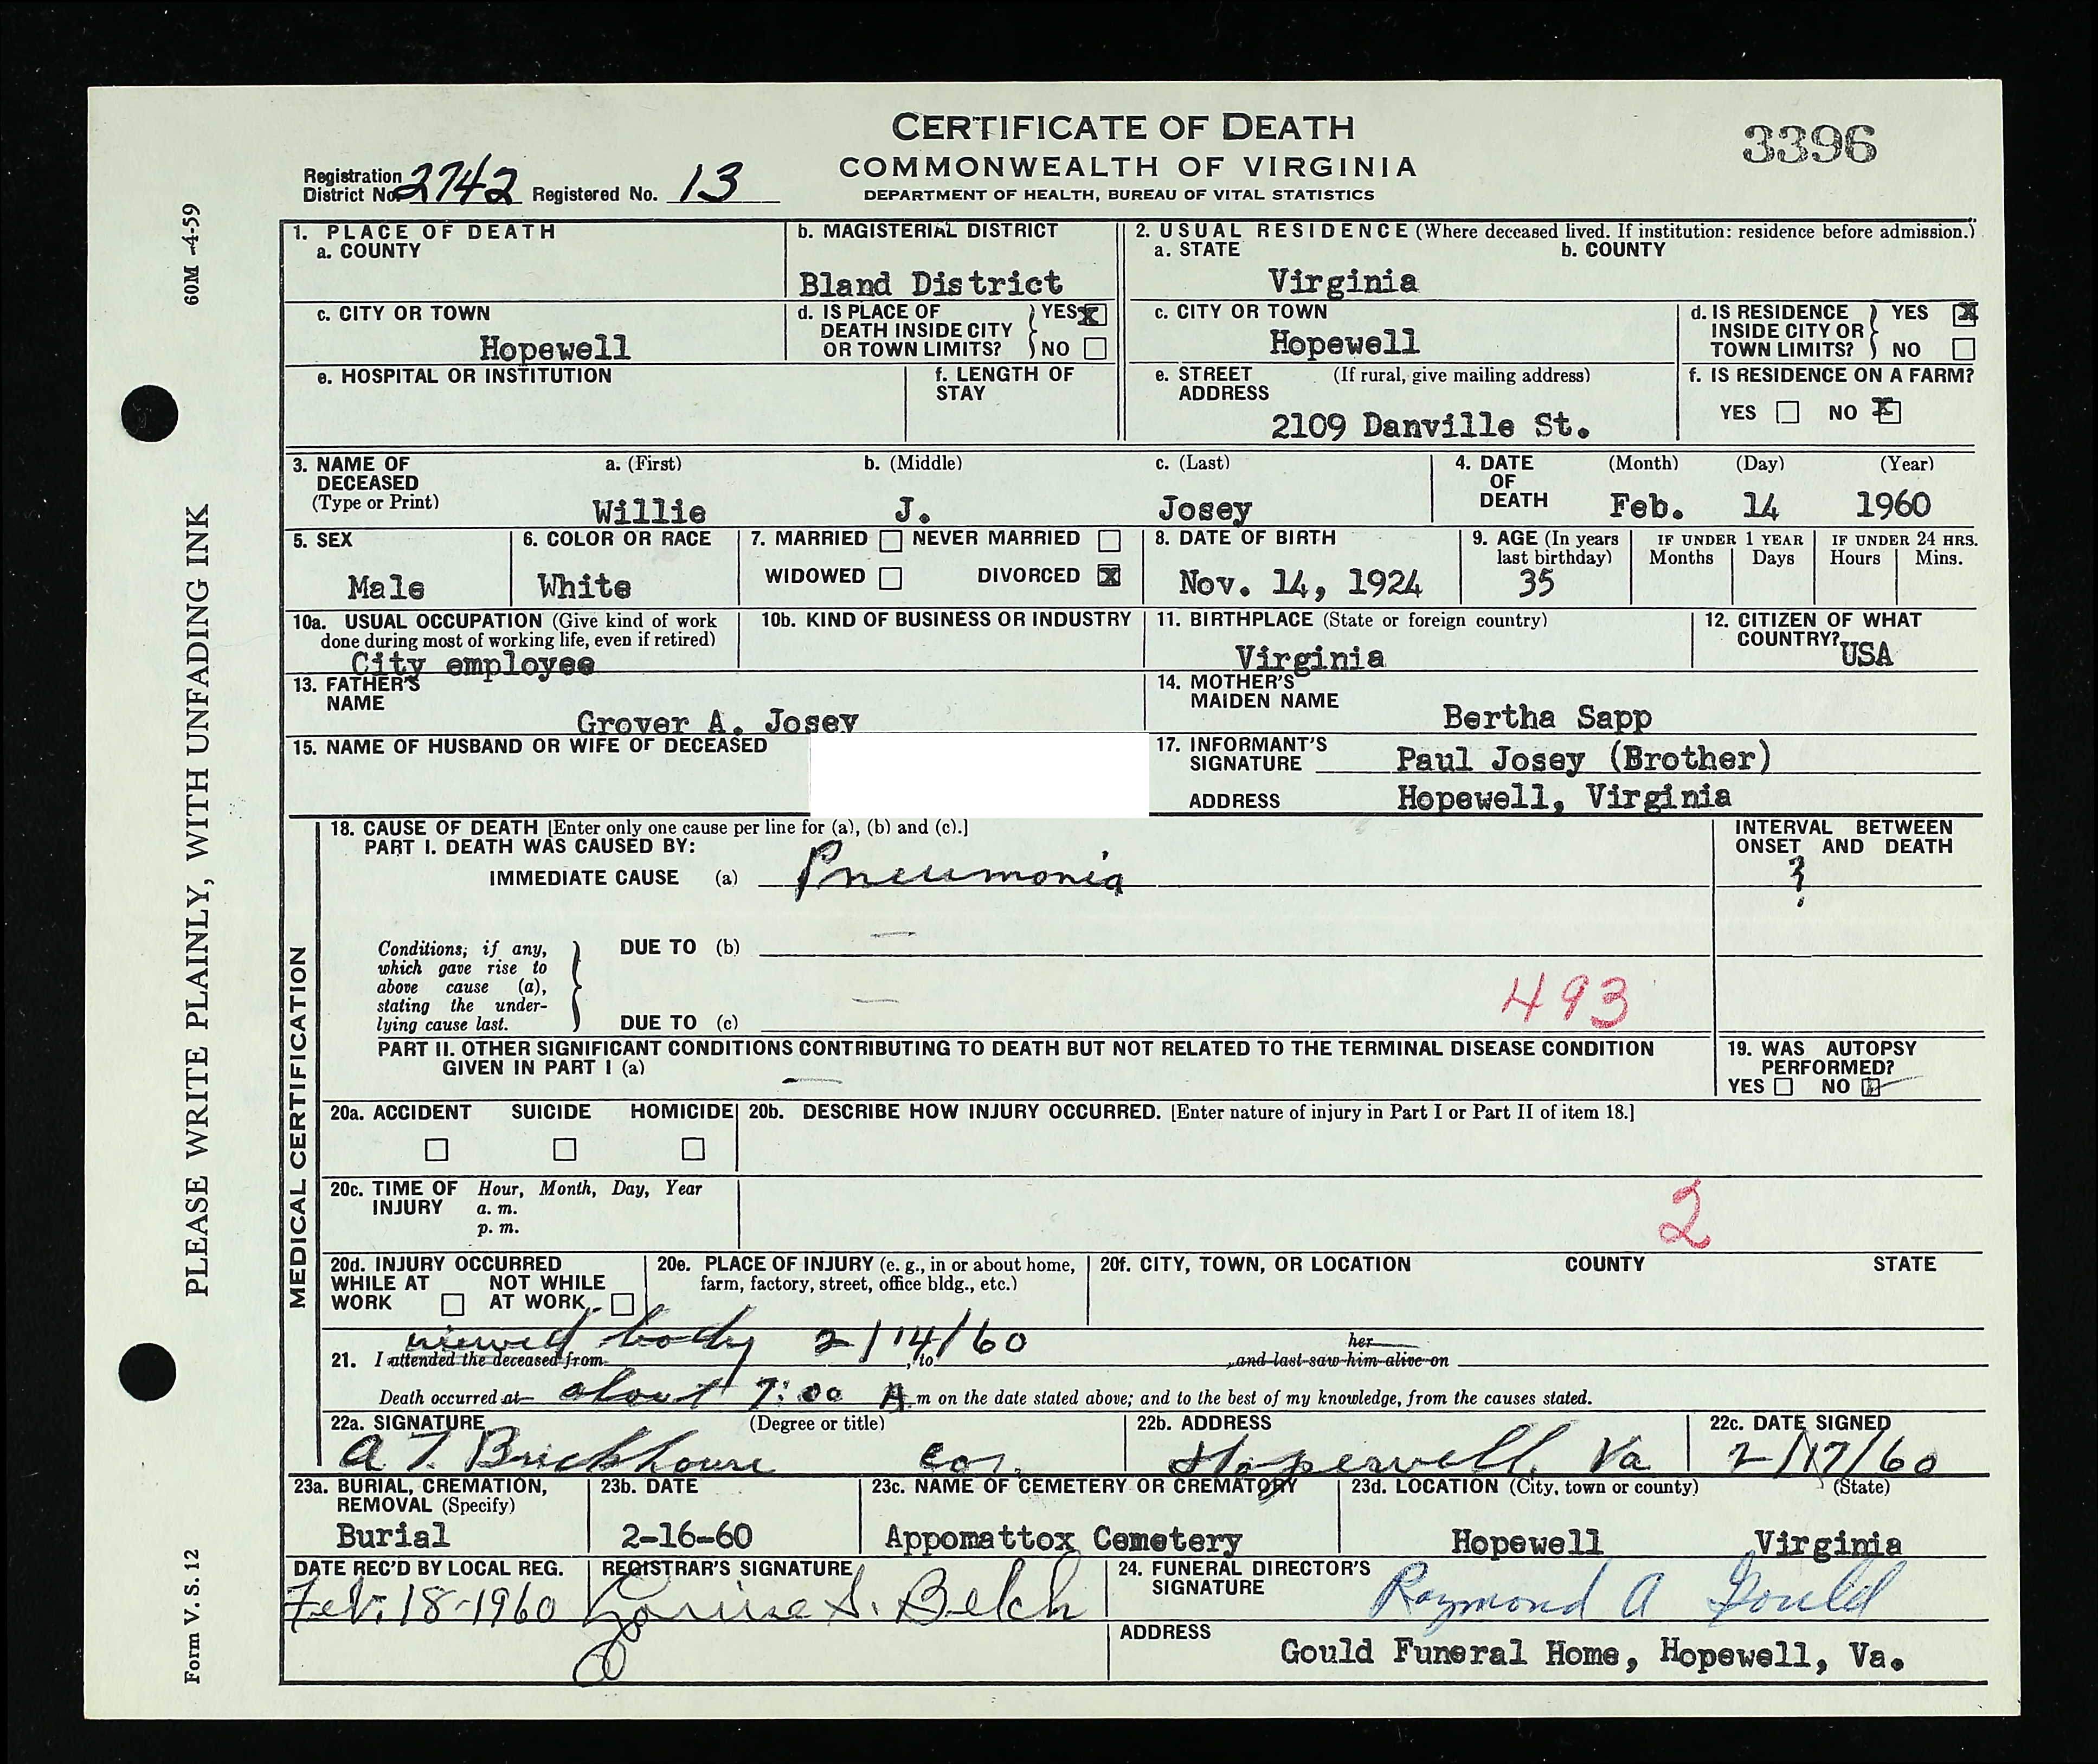 CERTIFICATE OF DEATH
COMMONWEALTH OF VIRGINIA
DEPARTMENT OF HEALTH, BUREAU OF VITAL STATISTICS
3396
Registration District No. 2742 Registered No. 13
60M -4-59
PLEASE WRITE PLAINLY, WITH UNFADING INK
Form V. S. 12
1. PLACE OF DEATH
a. COUNTY
b. MAGISTERIAL DISTRICT
Bland District
2. USUAL RESIDENCE (Where deceased lived. If institution: residence before admission.)
a. STATE
Virginia
b. COUNTY
c. CITY OR TOWN
Hopewell
d. IS PLACE OF DEATH INSIDE CITY OR TOWN LIMITS? YES X NO
c. CITY OR TOWN
Hopewell
d. IS RESIDENCE INSIDE CITY OR TOWN LIMITS? YES X NO
e. HOSPITAL OR INSTITUTION
f. LENGTH OF STAY
e. STREET ADDRESS (If rural, give mailing address)
2109 Danville St.
f. IS RESIDENCE ON A FARM?
YES NO X
3. NAME OF DECEASED (Type or Print)
a. (First) b. (Middle) c. (Last)
Willie J. Josey
4. DATE OF DEATH (Month) (Day) (Year)
Feb. 14 1960
5. SEX
Male
6. COLOR OR RACE
White
7. MARRIED NEVER MARRIED
WIDOWED DIVORCED X
8. DATE OF BIRTH
Nov. 14, 1924
9. AGE (In years last birthday)
35
IF UNDER 1 YEAR
Months Days
IF UNDER 24 HRS.
Hours Mins.
10a. USUAL OCCUPATION (Give kind of work done during most of working life, even if retired)
City employee
10b. KIND OF BUSINESS OR INDUSTRY
11. BIRTHPLACE (State or foreign country)
Virginia
12. CITIZEN OF WHAT COUNTRY?
USA
13. FATHER'S NAME
Grover A. Josey
14. MOTHER'S MAIDEN NAME
Bertha Sapp
15. NAME OF HUSBAND OR WIFE OF DECEASED
17. INFORMANT'S SIGNATURE Paul Josey (Brother)
ADDRESS Hopewell, Virginia
MEDICAL CERTIFICATION
18. CAUSE OF DEATH [Enter only one cause per line for (a), (b) and (c).]
PART I. DEATH WAS CAUSED BY:
IMMEDIATE CAUSE (a) Pneumonia
INTERVAL BETWEEN ONSET AND DEATH
?
Conditions, if any, which gave rise to above cause (a), stating the underlying cause last.
DUE TO (b) —
DUE TO (c) —
493
PART II. OTHER SIGNIFICANT CONDITIONS CONTRIBUTING TO DEATH BUT NOT RELATED TO THE TERMINAL DISEASE CONDITION GIVEN IN PART I (a)
—
19. WAS AUTOPSY PERFORMED?
YES NO ✓
20a. ACCIDENT SUICIDE HOMICIDE
20b. DESCRIBE HOW INJURY OCCURRED. [Enter nature of injury in Part I or Part II of item 18.]
20c. TIME OF INJURY Hour, Month, Day, Year
a. m.
p. m.
2
20d. INJURY OCCURRED
WHILE AT WORK NOT WHILE AT WORK
20e. PLACE OF INJURY (e. g., in or about home, farm, factory, street, office bldg., etc.)
20f. CITY, TOWN, OR LOCATION COUNTY STATE
viewed body 2/14/60
21. I attended the deceased from , to , and last saw him her alive on
Death occurred at about 7:00 A. m on the date stated above; and to the best of my knowledge, from the causes stated.
22a. SIGNATURE (Degree or title)
A T. Brickhouse Cor.
22b. ADDRESS
Hopewell, Va
22c. DATE SIGNED
2/17/60
23a. BURIAL, CREMATION, REMOVAL (Specify)
Burial
23b. DATE
2-16-60
23c. NAME OF CEMETERY OR CREMATORY
Appomattox Cemetery
23d. LOCATION (City, town or county) (State)
Hopewell Virginia
DATE REC'D BY LOCAL REG.
Feb. 18-1960
REGISTRAR'S SIGNATURE
Louise S. Belch
24. FUNERAL DIRECTOR'S SIGNATURE
Raymond A Gould
ADDRESS
Gould Funeral Home, Hopewell, Va.